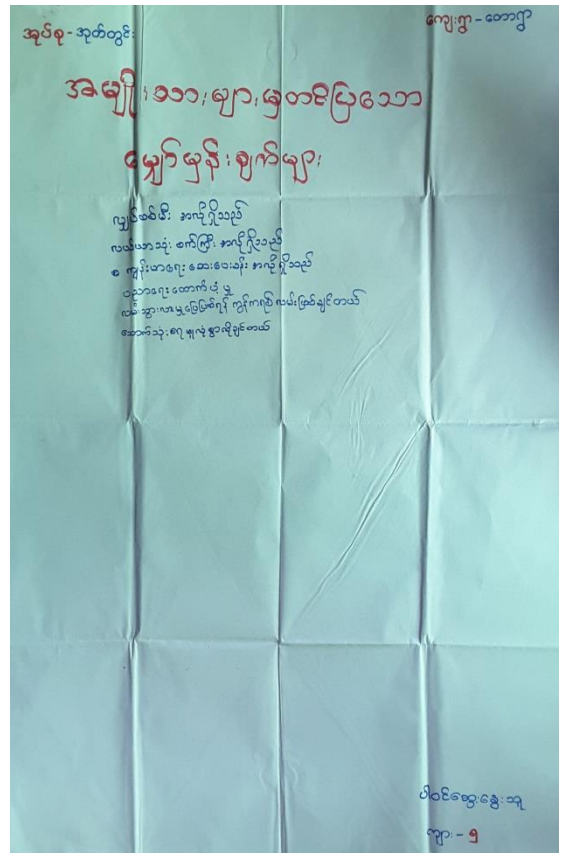 အုပ်စု - အုတ်တွင်း
ကျေးရွာ - တောရွာ
အမျိုးသားများမှတင်ပြသော
မျှော်မှန်းချက်များ
လျှပ်စစ်မီး အလိုရှိသည်
လယ်ယာသုံး စက်ကြီး အလိုရှိသည်
ကျန်းမာရေး ဆေးပေးခန်း အလိုရှိသည်
ပညာရေးထောက်ပံ့မှု
လမ်းသွားလာမှုပြေပြစ်ရန် ကွန်ကရစ်လမ်းဖြစ်ချင်တယ်
သောက်သုံးရေ လုံစွာလိုချင်တယ်
ပါဝင်ဆွေးနွေးသူ
ကျား - ၅